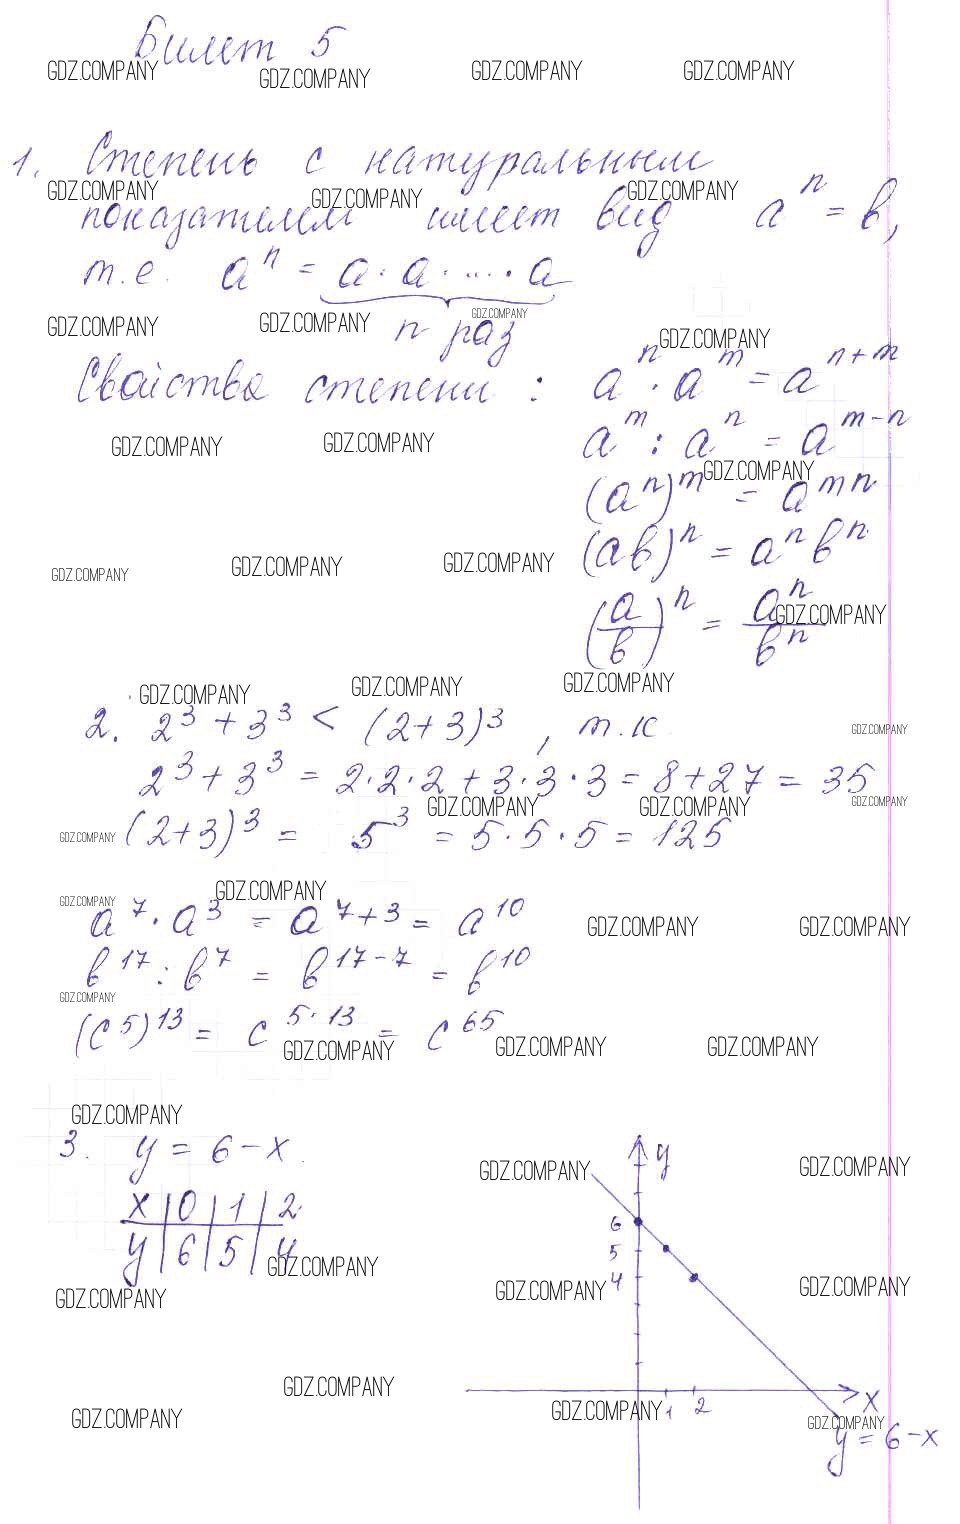 Билет 5
1. Степень с натуральным
показателем имеет вид aⁿ = в,
т.е. aⁿ = a · a · ... · a
n раз
Свойства степени: aⁿ · aᵐ = aⁿ⁺ᵐ
aᵐ : aⁿ = aᵐ⁻ⁿ
(aⁿ)ᵐ = aᵐⁿ
(aв)ⁿ = aⁿвⁿ
(a/в)ⁿ = aⁿ/вⁿ
2. 2³ + 3³ < (2+3)³, т.к.
2³ + 3³ = 2·2·2 + 3·3·3 = 8+27 = 35
(2+3)³ = 5³ = 5·5·5 = 125
a⁷ · a³ = a⁷⁺³ = a¹⁰
в¹⁷ : в⁷ = в¹⁷⁻⁷ = в¹⁰
(c⁵)¹³ = c⁵·¹³ = c⁶⁵
3. y = 6 - x
x | 0 | 1 | 2
y | 6 | 5 | 4
y
6
5
4
1 2 x
y = 6 - x
GDZ.COMPANY